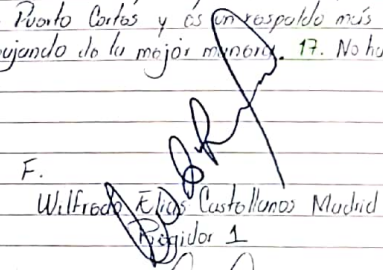 Puerto Cortés y es un respaldo más
ujando de la mejor manera. 17. No ha
F.
Wilfredo Elias Castellanos Madrid
Regidor 1